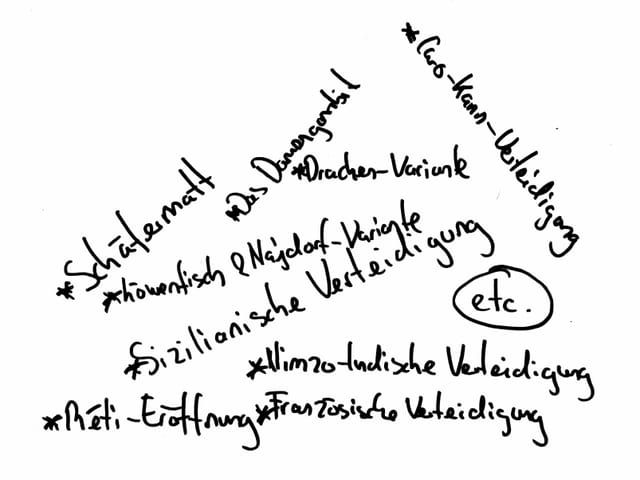 *Caro-Kann-Verteidigung
*Das Damengambit
*Drachen-Variante
*Schäfermatt
*Löwenfisch & Najdorf-Variante
*Sizilianische Verteidigung
etc.
*Nimzo-Indische Verteidigung
*Réti-Eröffnung
*Französische Verteidigung